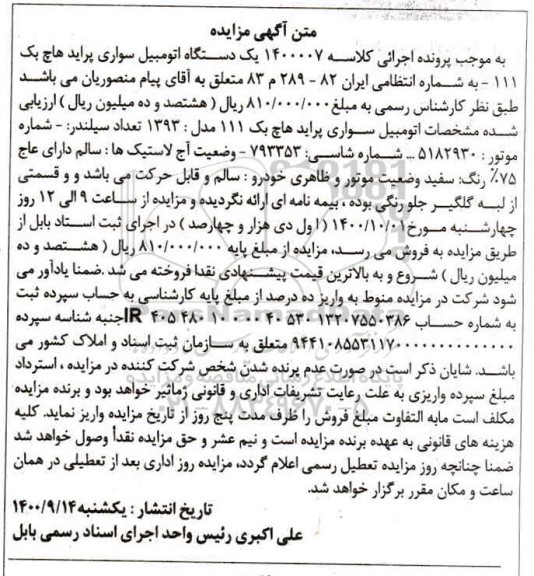 متن آگهی مزایده
به موجب پرونده اجرائی کلاسه ۱۴۰۰۰۰۷ یک دستگاه اتومبیل سواری پراید هاچ بک
۱۱۱ - به شماره انتظامی ایران ۸۲ - ۲۸۹ م ۸۳ متعلق به آقای پیام منصوریان می باشد
طبق نظر کارشناس رسمی به مبلغ ۸۱۰/۰۰۰/۰۰۰ ریال ( هشتصد و ده میلیون ریال ) ارزیابی
شده مشخصات اتومبیل سواری پراید هاچ بک ۱۱۱ مدل : ۱۳۹۳ تعداد سیلندر: - شماره
موتور : ۵۱۸۲۹۳۰ ... شماره شاسی: ۷۹۳۳۵۳ - وضعیت آج لاستیک ها : سالم دارای عاج
۷۵٪ رنگ: سفید وضعیت موتور و ظاهری خودرو : سالم و قابل حرکت می باشد و و قسمتی
از لبه گلگیر جلو رنگی بوده ، بیمه نامه ای ارائه نگردیده و مزایده از ساعت ۹ الی ۱۲ روز
چهارشنبه مورخ ۱۴۰۰/۱۰/۰۱ (اول دی هزار و چهارصد ) در اجرای ثبت اسناد بابل از
طریق مزایده به فروش می رسد، مزایده از مبلغ پایه ۸۱۰/۰۰۰/۰۰۰ ریال ( هشتصد و ده
میلیون ریال ) شروع و به بالاترین قیمت پیشنهادی نقدا فروخته می شد .ضمنا یادآور می
شود شرکت در مزایده منوط به واریز ده درصد از مبلغ پایه کارشناسی به حساب سپرده ثبت
به شماره حساب IR جنبه شناسه سپرده
متعلق به سازمان ثبت اسناد و املاک کشور می
باشد. شایان ذکر است در صورت عدم برنده شدن شخص شرکت کننده در مزایده ، استرداد
مبلغ سپرده واریزی به علت رعایت تشریفات اداری و قانونی زمانبر خواهد بود و برنده مزایده
مکلف است مابه التفاوت مبلغ فروش را ظرف مدت پنج روز از تاریخ مزایده واریز نماید. کلیه
هزینه های قانونی به عهده برنده مزایده است و نیم عشر و حق مزایده نقدأ وصول خواهد شد
ضمنا چنانچه روز مزایده تعطیل رسمی اعلام گردد، مزایده روز اداری بعد از تعطیلی در همان
ساعت و مکان مقرر برگزار خواهد شد.
تاریخ انتشار : یکشنبه ۱۴۰۰/۹/۱۴
علی اکبری رئیس واحد اجرای اسناد رسمی بابل